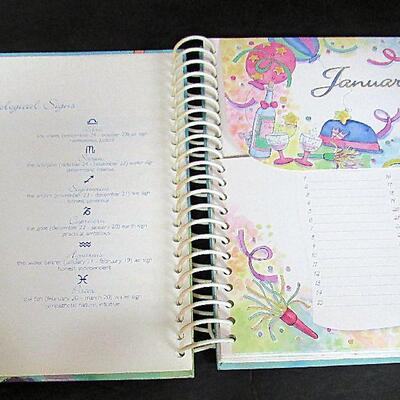 ological Signs
♎
Libra
the scales (september 24 - october 23) air sign
♏
Scorpio
the scorpion (october 24 - november 22) water sign
♐
Sagittarius
the archer (november 23 - december 21) fire sign
honest, powerful
♑
Capricorn
the goat (december 22 - january 20) earth sign
practical, ambitious
♒
Aquarius
the water bearer (january 21 - february 19) air sign
honest, independent
♓
Pisces
the fish (february 20 - march 20) water sign
sympathetic nature, intuitive
Januar